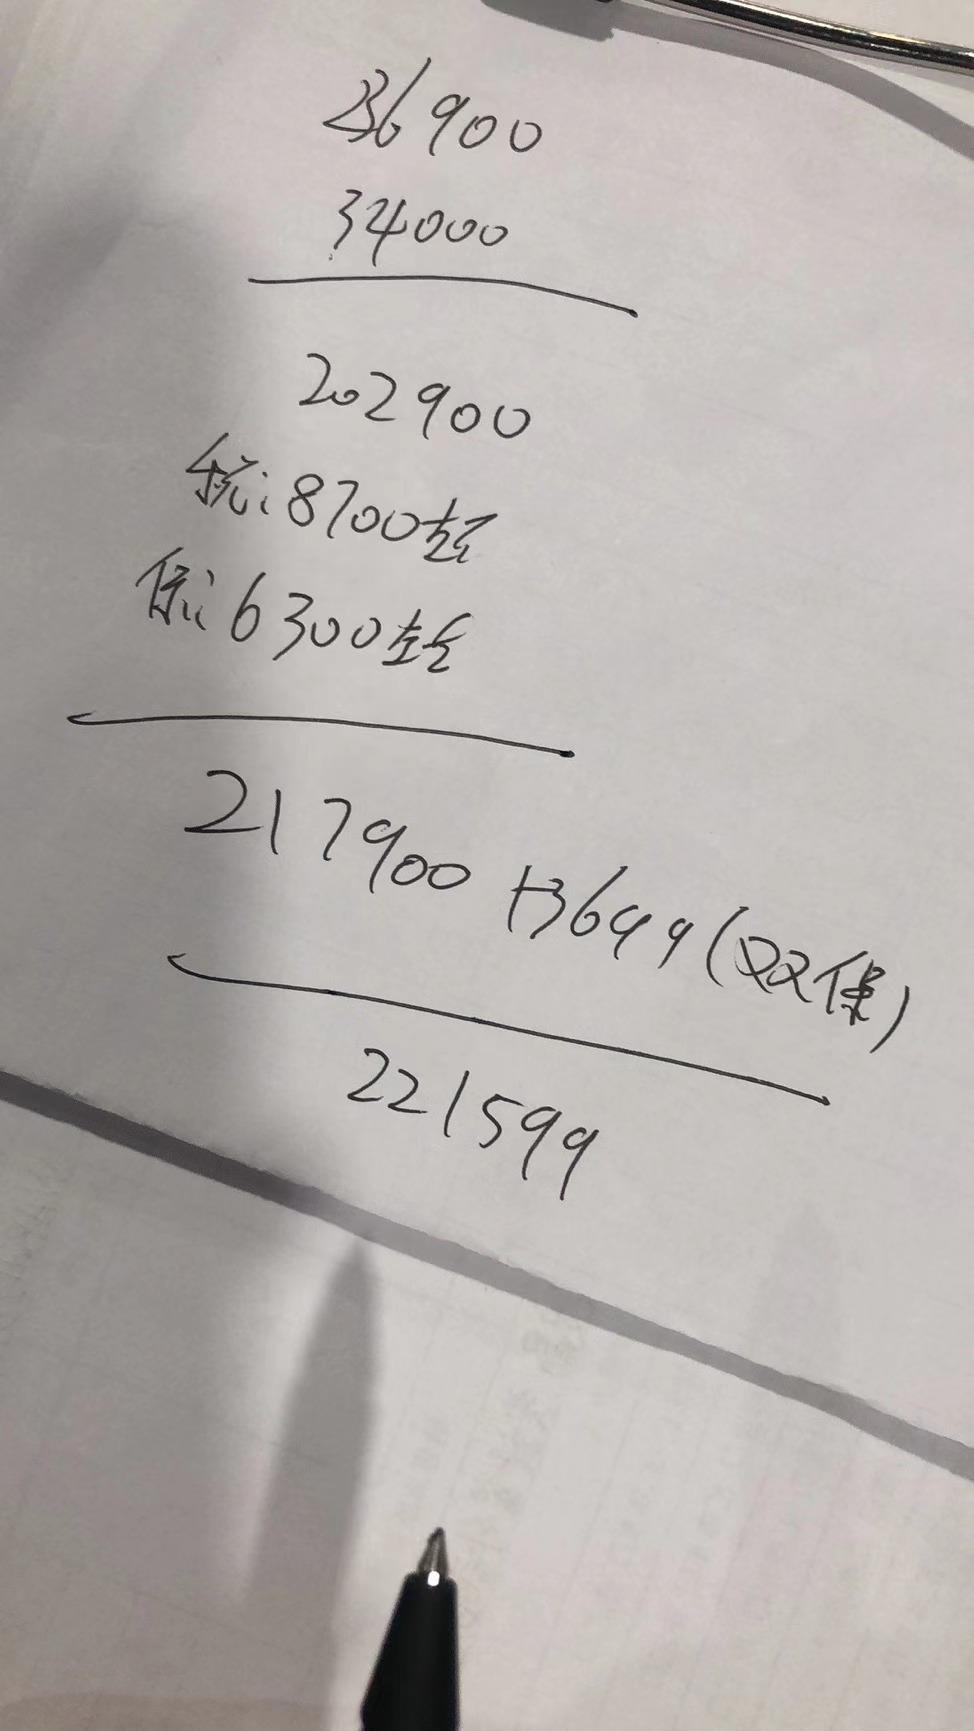 236900
34000
202900
税:8700左右
保:6300左右
217900+3699(双保)
221599